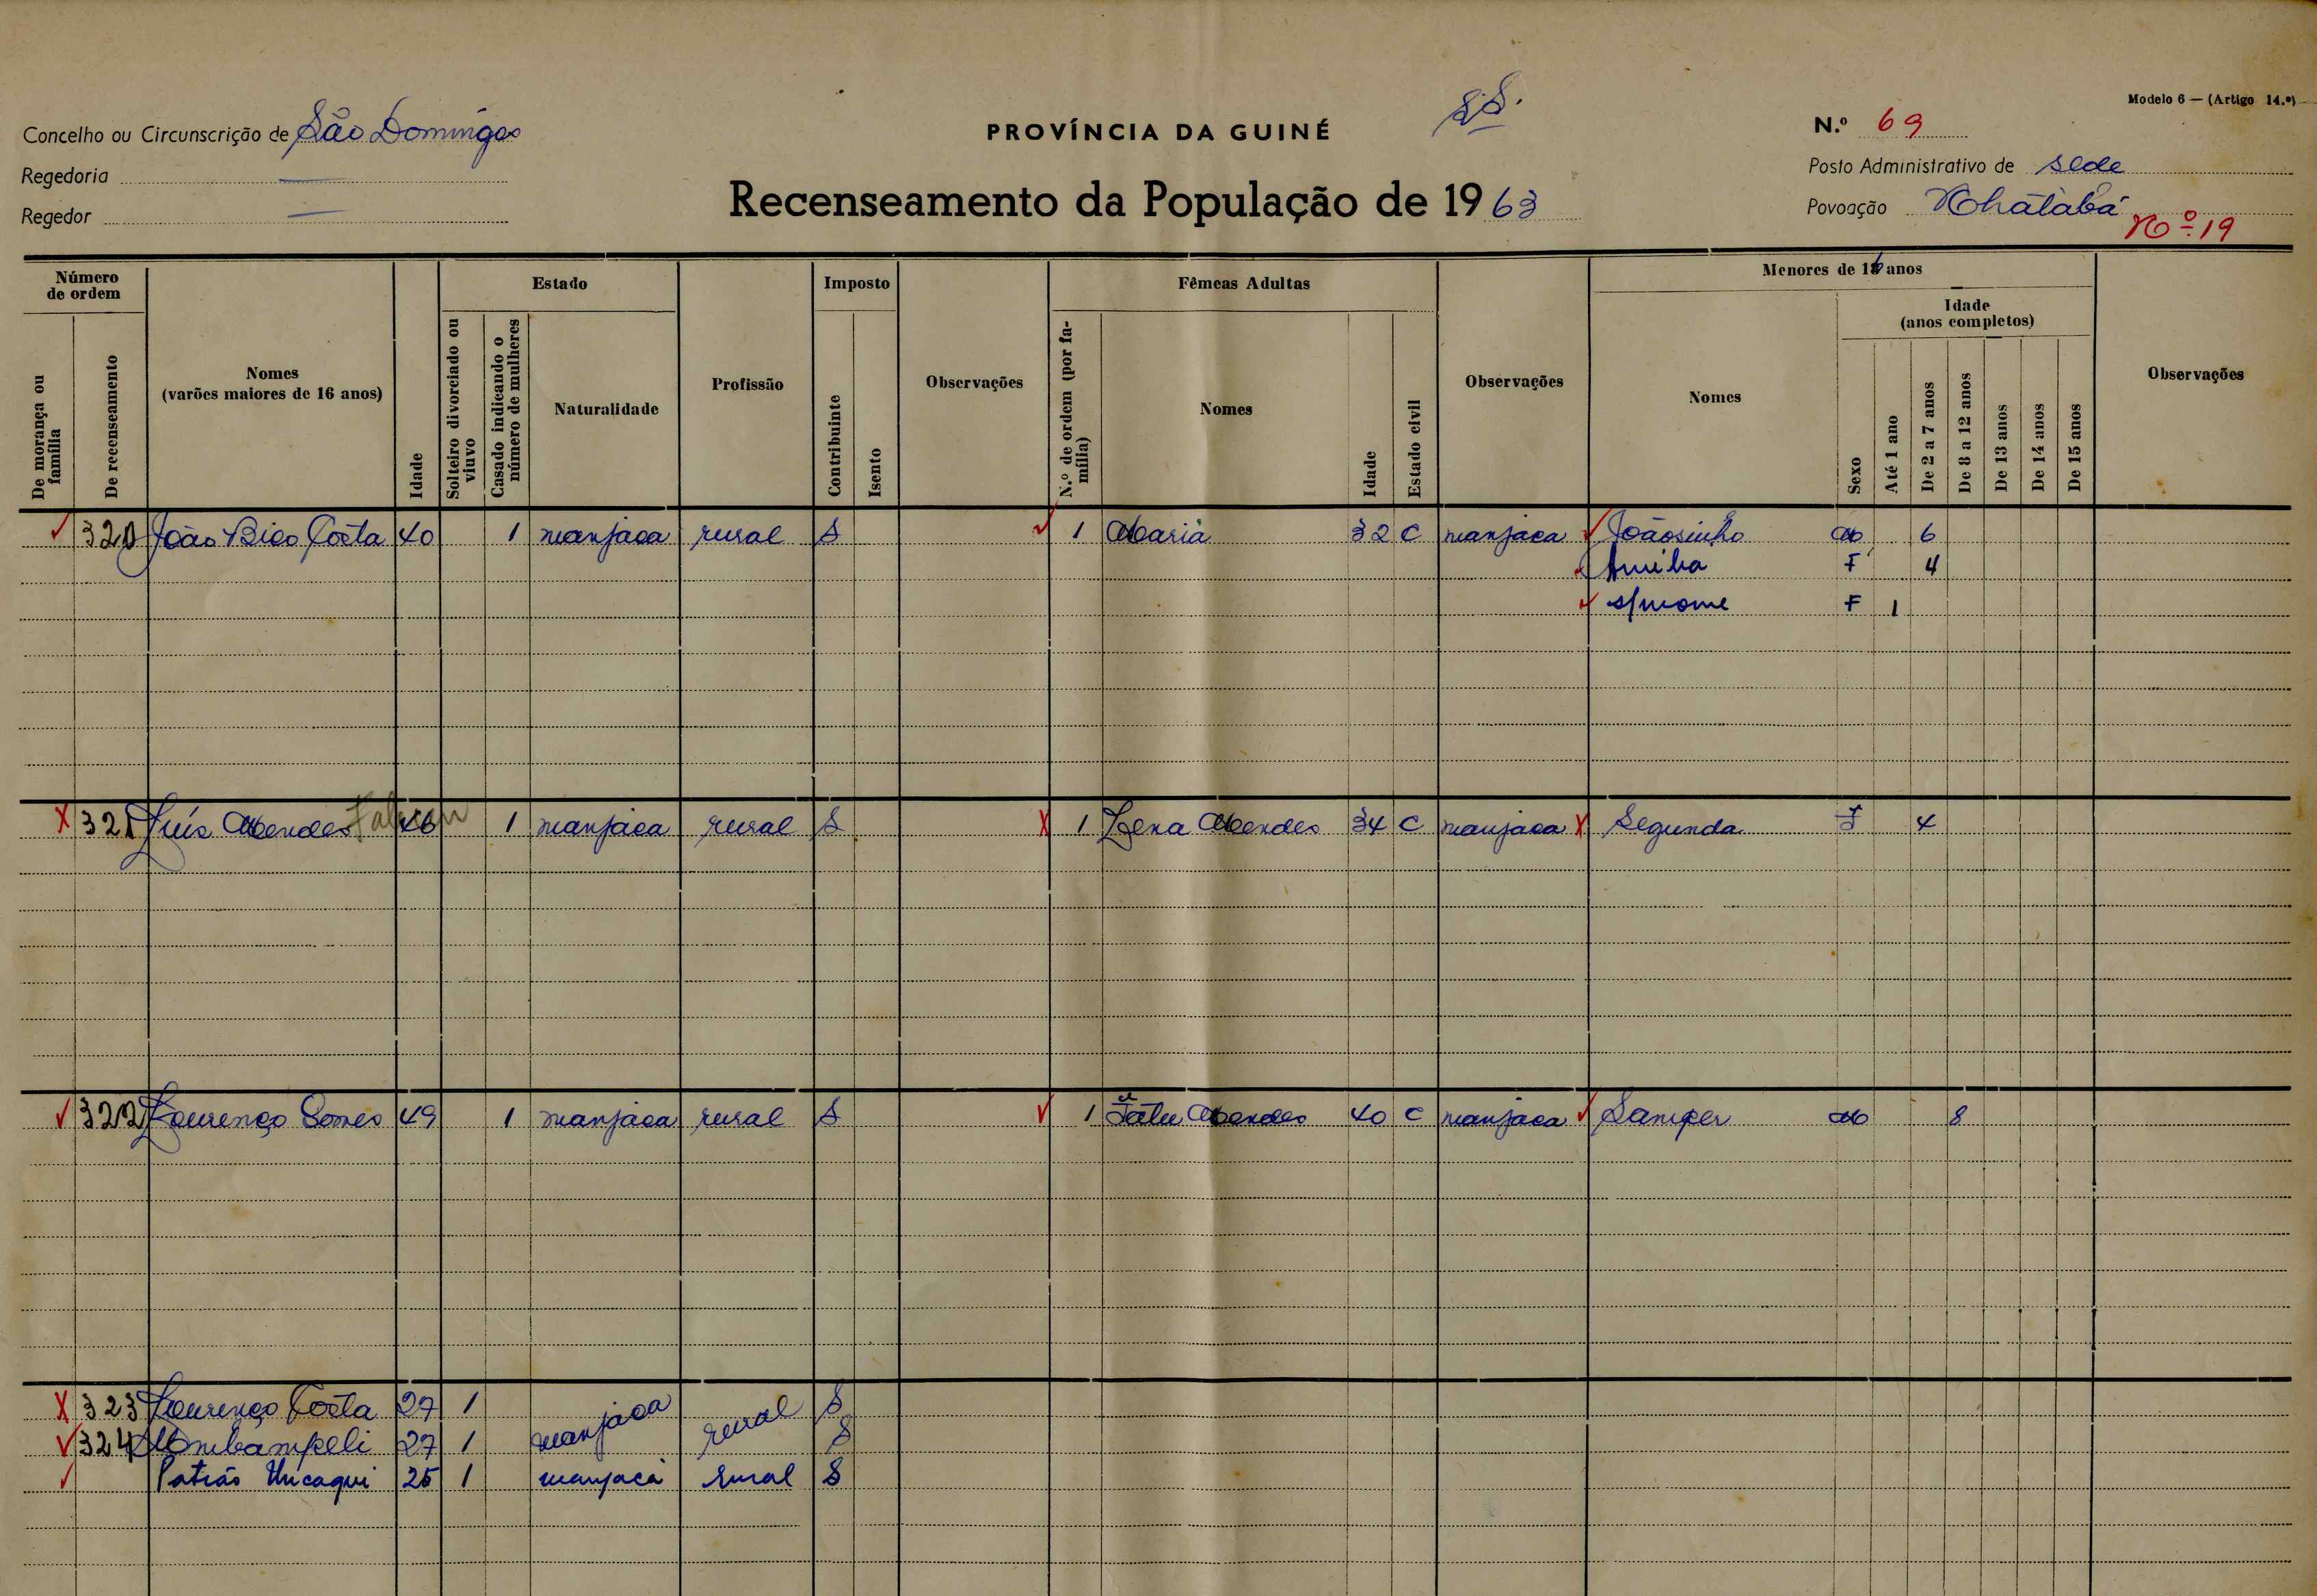 Modelo 6 — (Artigo 14.º)
Concelho ou Circunscrição de São Domingos
PROVÍNCIA DA GUINÉ
N.º 69
Regedoria —
Posto Administrativo de Sede
Regedor —
Recenseamento da População de 1963
Povoação Nhátabá
Nº 19
Número de ordem
De morança ou família
De recenseamento
Nomes
(varões maiores de 16 anos)
Idade
Estado
Solteiro divorciado ou viuvo
Casado indicando o número de mulheres
Naturalidade
Profissão
Imposto
Contribuinte
Isento
Observações
Fêmeas Adultas
N.º de ordem (por família)
Nomes
Idade
Estado civil
Observações
Menores de 16 anos
Nomes
Sexo
Idade
(anos completos)
Até 1 ano
De 2 a 7 anos
De 8 a 12 anos
De 13 anos
De 14 anos
De 15 anos
Observações
320 João Bico Costa 40 1 manjaca rural S 1 Maria 32 C manjaca Joãosinho M 6
F 4
s/nome F 1
321 Luís Mendes 46 1 manjaca rural S 1 Lena Mendes 34 C manjaca Segunda F 4
Faleceu
322 Lourenço Gomes 49 1 manjaca rural S 1 Mendes 40 C manjaca Samper M 8
323 Lourenço Costa 27 1 manjaca rural S
324 27 1 S
Patrão 25 1 manjaca rural S